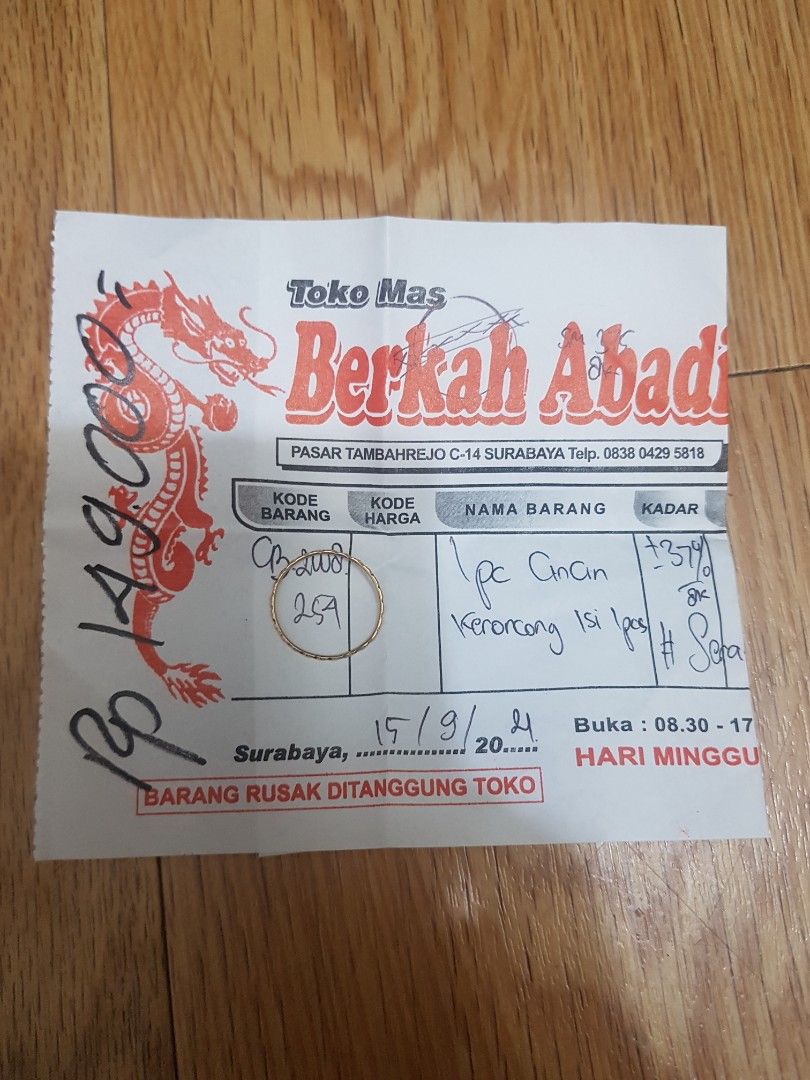 Rp 149.000,-
Toko Mas
Berkah Abadi
PASAR TAMBAHREJO C-14 SURABAYA Telp. 0838 0429 5818
KODE BARANG
KODE HARGA
NAMA BARANG
KADAR
254
1 pc Cincin
Keroncong isi 1pcs
± 37%
Surabaya, 15/9/2021
Buka : 08.30 - 17
HARI MINGGU
BARANG RUSAK DITANGGUNG TOKO